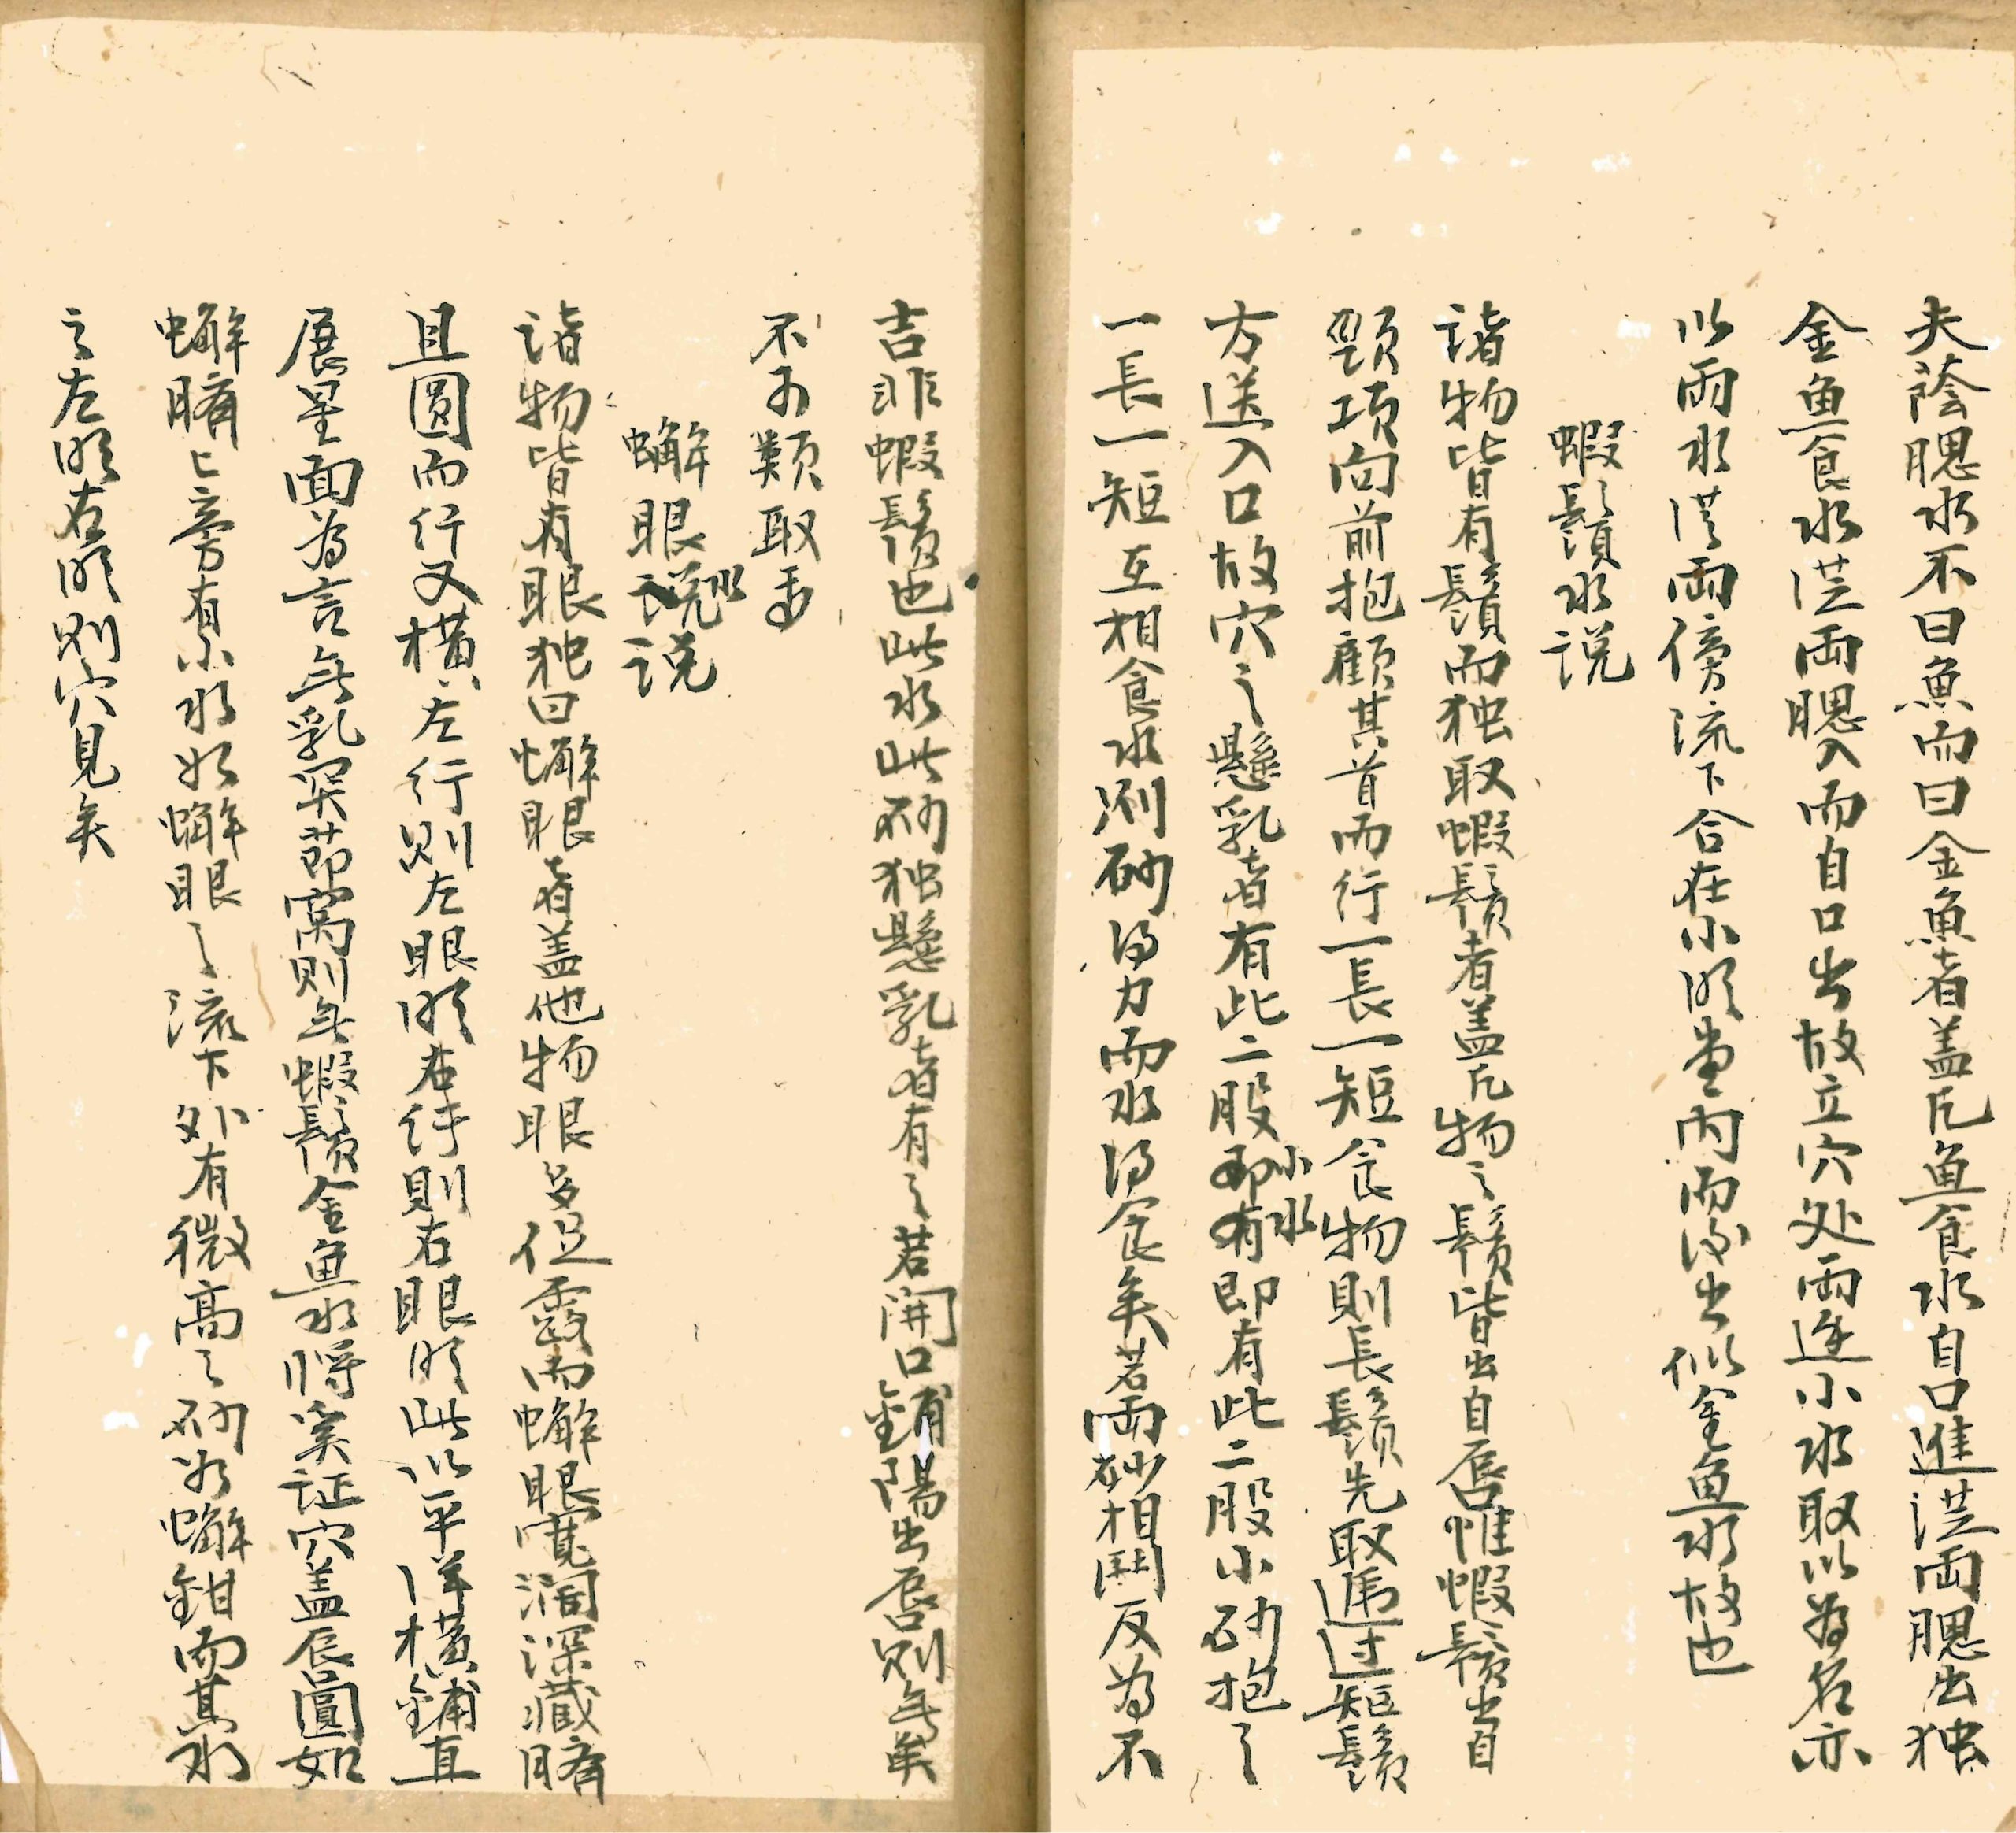 夫蔭腮水不曰魚而曰金魚者盖凡魚食水自口進從両腮出独
金魚食水從両腮入而自口出故立穴处両邊小水取以為名亦
以両水從両傍流下合在小明堂内而後出似金魚水故也
蝦鬚水説
諸物皆有鬚而独取蝦鬚者盖凡物之鬚皆出自唇惟蝦鬚出自
頸項向前抱顧其首而行一長一短食物則長鬚先取遞过短鬚
方送入口故穴之懸乳者有此二股小水即有此二股小砂抱之
一長一短互相食水則砂得力而水得食矣若両砂相鬪反為不
吉非蝦鬚也此水此砂独懸乳者有之若開口鋪陽出唇則無矣
不可類取也
蠏眼水説
諸物皆有眼独曰蠏眼者盖他物眼多促露而蠏眼寬濶深藏臍
且圓而行又横左行則左眼明右行則右眼明此以平洋横鋪直
展星面為言無乳突節窩則無蝦鬚金魚水将奚证穴盖唇圓如
蠏臍匕旁有小水如蠏眼之滚下外有微高之砂如蠏鉗而其水
之左明右明则穴見矣